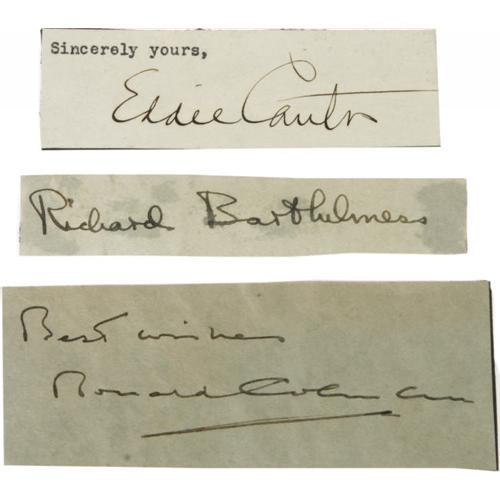 Sincerely yours,
Eddie Cantor
Richard Barthelmess
Best wishes
Ronald Colman